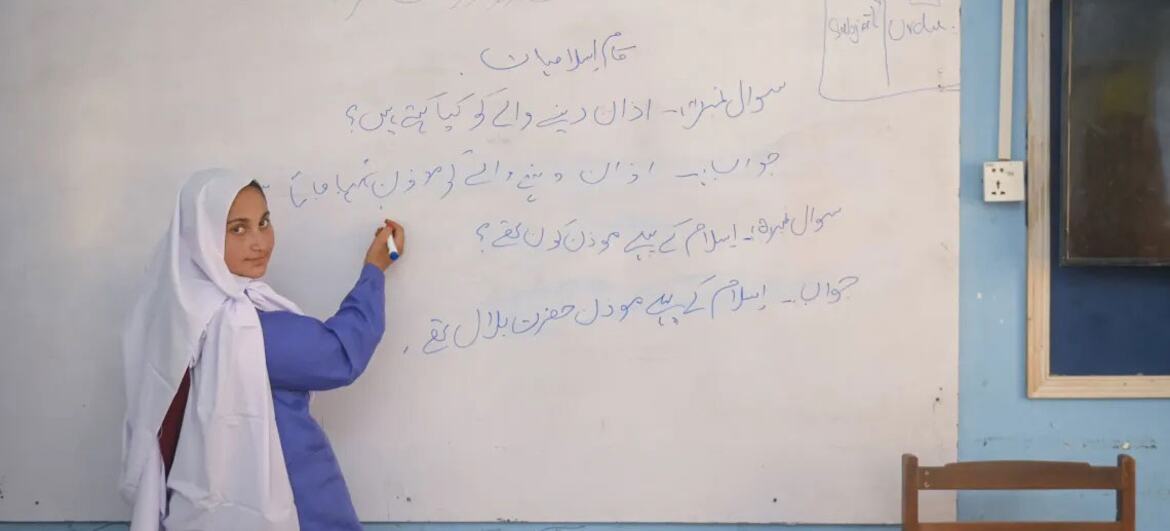 Subject Urdu.
کام اسلامیات
سوال نمبر۱:۔ اذان دینے والے کو کیا کہتے ہیں؟
جواب:۔ اذان دینے والے کو موذن کہا جاتا
سوال نمبر۵:۔ اسلام کے پہلے موذن کون تھے؟
جواب:۔ اسلام کے پہلے موذن حضرت بلال تھے